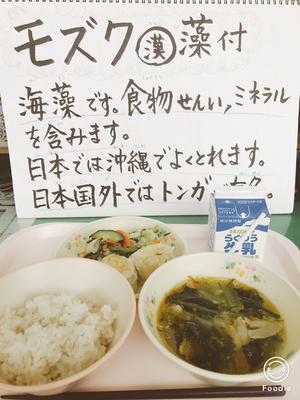 モズク 漢 藻付
海藻です。食物せんい,ミネラル
を含みます。
日本では沖縄でよくとれます。
日本国外ではトンガが有名。
らくのう
牛乳
Foodie